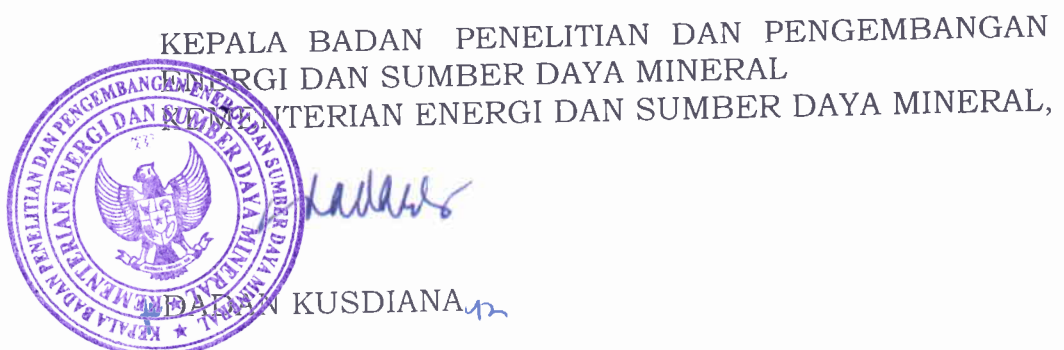 KEPALA BADAN PENELITIAN DAN PENGEMBANGAN
ENERGI DAN SUMBER DAYA MINERAL
KEMENTERIAN ENERGI DAN SUMBER DAYA MINERAL,
KEPALA BADAN PENELITIAN DAN PENGEMBANGAN ENERGI DAN SUMBER DAYA MINERAL
KEMENTERIAN ENERGI DAN SUMBER DAYA MINERAL
DADAN KUSDIANA